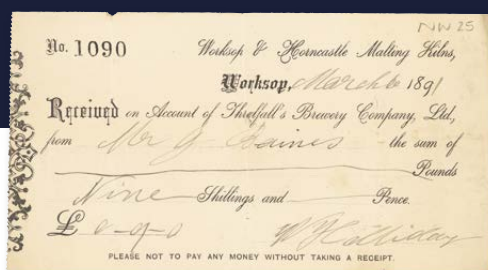 NW 25
No. 1090 Worksop & Horncastle Malting Kilns,
Worksop, March 6 1891
Received on Account of Threlfall's Brewery Company, Ltd,
from Mr J Baines the sum of
Pounds
Nine Shillings and Pence.
£ 0-9-0 W Halliday
PLEASE NOT TO PAY ANY MONEY WITHOUT TAKING A RECEIPT.